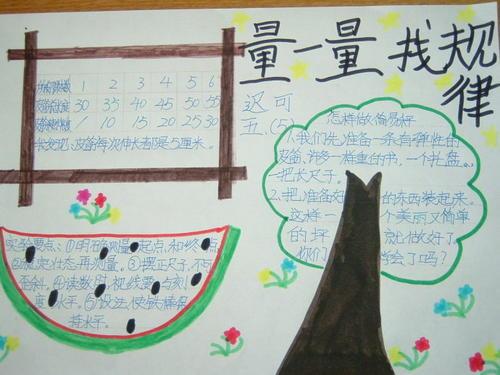 量一量 找规律
迟可
五.(5)
1 2 3 4 5 6
30 35 40 45 50 55
/ 10 15 20 25 30
我发现:皮筋每次伸长都是5厘米。
怎样做简易秤
1.我们先准备一条有弹性的
皮筋、许多一样重的书、一个托盘、
一把长尺子。
2.把准备好的东西装起来。
这样一个美丽又简单
的秤就做好了。
你们学会了吗?
实验要点:①明确测量起点和终点
②稳定状态再测量。③摆正尺子,不可
歪斜。④读数时,视线要与刻
度水平。⑤设法使铁棒保
持水平。